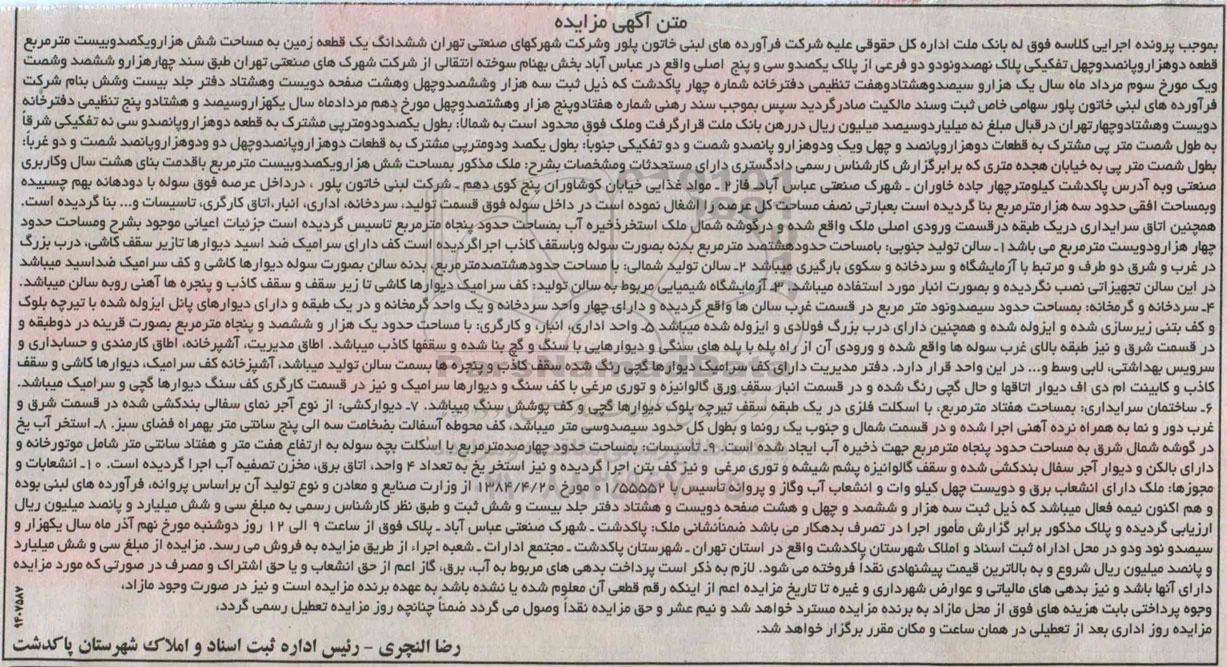 متن آگهی مزایده
بموجب پرونده اجرایی کلاسه فوق له بانک ملت اداره کل حقوقی علیه شرکت فرآورده های لبنی خاتون پلور وشرکت شهرکهای صنعتی تهران ششدانگ یک قطعه زمین به مساحت شش هزارویکصدوبیست مترمربع
قطعه دوهزاروپانصدوچهل تفکیکی پلاک نهصدونودو دو فرعی از پلاک یکصدو سی و پنج اصلی واقع در عباس آباد بخش بهنام سوخته انتقالی از شرکت شهرک های صنعتی تهران طبق سند چهارهزارو ششصد وشصت
ویک مورخ سوم مرداد ماه سال یک هزارو سیصدوهشتادوهفت تنظیمی دفترخانه شماره چهار پاکدشت که ذیل ثبت سه هزار وششصدوچهل وهشت صفحه دویست وهشتاد دفتر جلد بیست وشش بنام شرکت
فرآورده های لبنی خاتون پلور سهامی خاص ثبت وسند مالکیت صادرگردید سپس بموجب سند رهنی شماره هفتادوپنج هزار وهشتصدوچهل مورخ دهم مردادماه سال یکهزاروسیصد و هشتادو پنج تنظیمی دفترخانه
دویست وهشتادوچهارتهران درقبال مبلغ نه میلیاردوسیصد میلیون ریال دررهن بانک ملت قرارگرفت وملک فوق محدود است به شمالاً: بطول یکصدودومترپی مشترک به قطعه دوهزاروپانصدو سی نه تفکیکی شرقاً
به طول شصت متر پی مشترک به قطعات دوهزاروپانصد و چهل ویک ودوهزارو پانصدو شصت و دو تفکیکی جنوبا: بطول یکصد ودومترپی مشترک به قطعات دوهزاروپانصدوچهل دو ودوهزاروپانصد شصت و دو غرباً:
بطول شصت متر پی به خیابان هجده متری که برابرگزارش کارشناس رسمی دادگستری دارای مستحدثات ومشخصات بشرح: ملک مذکور بمساحت شش هزارویکصدوبیست مترمربع باقدمت بنای هشت سال وکاربری
صنعتی وبه آدرس پاکدشت کیلومترچهار جاده خاوران ـ شهرک صنعتی عباس آباد ـ فاز۲ ـ مواد غذایی خیابان کوشاوران پنج کوی دهم ـ شرکت لبنی خاتون پلور ، درداخل عرصه فوق سوله با دودهانه بهم چسبیده
وبمساحت افقی حدود سه هزارمترمربع بنا گردیده است بعبارتی نصف مساحت کل عرصه را اشغال نموده است در داخل سوله فوق قسمت تولید، سردخانه، اداری، انبار،اتاق کارگری، تاسیسات و... بنا گردیده است.
همچنین اتاق سرایداری دریک طبقه درقسمت ورودی اصلی ملک واقع شده و درگوشه شمال ملک استخرذخیره آب بمساحت حدود پنجاه مترمربع تاسیس گردیده است جزئیات اعیانی موجود بشرح ومساحت حدود
چهار هزارودویست مترمربع می باشد۱ـ سالن تولید جنوبی: بامساحت حدودهشتصد مترمربع بدنه بصورت سوله وباسقف کاذب اجراگردیده است کف دارای سرامیک ضد اسید دیوارها تازیر سقف کاشی، درب بزرگ
در غرب و شرق دو طرف و مرتبط با آزمایشگاه و سردخانه و سکوی بارگیری میباشد ۲ـ سالن تولید شمالی: با مساحت حدودهشتصدمترمربع، بدنه سالن بصورت سوله دیوارها کاشی و کف سرامیک ضداسید میباشد
در این سالن تجهیزاتی نصب نگردیده و بصورت انبار مورد استفاده میباشد. ۳ـ آزمایشگاه شیمیایی مربوط به سالن تولید: کف سرامیک دیوارها کاشی تا زیر سقف و سقف کاذب و پنجره ها آهنی روبه سالن میباشد.
۴ـ سردخانه و گرمخانه: بمساحت حدود سیصدونود متر مربع در قسمت غرب سالن ها واقع گردیده و دارای چهار واحد سردخانه و یک واحد گرمخانه و در یک طبقه و دارای دیوارهای پانل ایزوله شده با تیرچه بلوک
و کف بتنی زیرسازی شده و ایزوله شده و همچنین دارای درب بزرگ فولادی و ایزوله شده میباشد ۵ـ واحد اداری، انبار، و کارگری: با مساحت حدود یک هزار و ششصد و پنجاه مترمربع بصورت قرینه در دوطبقه و
در قسمت شرق و نیز طبقه بالای غرب سوله ها واقع شده و ورودی آن از راه پله با پله های سنگی و دیوارهایی با سنگ و گچ بنا شده و سقفها کاذب میباشد. اطاق مدیریت، آشپرخانه، اطاق کارمندی و حسابداری و
سرویس بهداشتی، لابی وسط و... در این واحد قرار دارد. دفتر مدیریت دارای کف سرامیک دیوارها گچی رنگ شده سقف کاذب و پنجره ها بسمت سالن تولید میباشد، آشپزخانه کف سرامیک، دیوارها کاشی و سقف
کاذب و کابینت ام دی اف دیوار اتاقها و حال گچی رنگ شده و در قسمت انبار سقف ورق گالوانیزه و توری مرغی با کف سنگ و دیوارها سرامیک و نیز در قسمت کارگری کف سنگ دیوارها گچی و سرامیک میباشد.
۶ـ ساختمان سرایداری: بمساحت هفتاد مترمربع، با اسکلت فلزی در یک طبقه سقف تیرچه بلوک دیوارها گچی و کف پوشش سنگ میباشد. ۷ـ دیوارکشی: از نوع آجر نمای سفالی بندکشی شده در قسمت شرق و
غرب دور و نما به همراه نرده آهنی اجرا شده و در قسمت شمال و جنوب یک رونما و بطول کل حدود سیصدوسی متر میباشد، کف محوطه آسفالت بضخامت سه الی پنج سانتی متر بهمراه فضای سبز. ۸ـ استخر آب یخ
در گوشه شمال شرق به مساحت حدود پنجاه مترمربع جهت ذخیره آب ایجاد شده است. ۹ـ تأسیسات: بمساحت حدود چهارصدمترمربع با اسکلت بچه سوله به ارتفاع هفت متر و هفتاد سانتی متر شامل موتورخانه و
دارای بالکن و دیوار آجر سفال بندکشی شده و سقف گالوانیزه پشم شیشه و توری مرغی و نیز کف بتن اجرا گردیده و نیز استخر یخ به تعداد ۴ واحد، اتاق برق، مخزن تصفیه آب اجرا گردیده است. ۱۰ـ انشعابات و
مجوزها: ملک دارای انشعاب برق و دویست چهل کیلو وات و انشعاب آب وگاز و پروانه تأسیس ۱۰۲/۵۵۵۵۲ مورخ ۱۳۸۴/۴/۲۰ از وزارت صنایع و معادن و نوع تولید آن براساس پروانه، فرآورده های لبنی بوده
و هم اکنون نیمه فعال میباشد که ذیل ثبت سه هزار و ششصد و چهل و هشت صفحه دویست و هشتاد دفتر جلد بیست و شش ثبت و طبق نظر کارشناس رسمی به مبلغ سی و شش میلیارد و پانصد میلیون ریال
ارزیابی گردیده و پلاک مذکور برابر گزارش مأمور اجرا در تصرف بدهکار می باشد ضمناًنشانی ملک: پاکدشت ـ شهرک صنعتی عباس آباد ـ پلاک فوق از ساعت ۹ الی ۱۲ روز دوشنبه مورخ نهم آذر ماه سال یکهزار و
سیصدو نود ودو در محل اداراه ثبت اسناد و املاک شهرستان پاکدشت واقع در استان تهران ـ شهرستان پاکدشت ـ مجتمع ادارات ـ شعبه اجراء از طریق مزایده به فروش می رسد. مزایده از مبلغ سی و شش میلیارد
و پانصد میلیون ریال شروع و به بالاترین قیمت پیشنهادی نقداً فروخته می شود. لازم به ذکر است پرداخت بدهی های مربوط به آب، برق، گاز اعم از حق انشعاب و یا حق اشتراک و مصرف در صورتی که مورد مزایده
دارای آنها باشد و نیز بدهی های مالیاتی و عوارض شهرداری و غیره تا تاریخ مزایده اعم از اینکه رقم قطعی آن معلوم شده یا نشده باشد به عهده برنده مزایده است و نیز در صورت وجود مازاد،
وجوه پرداختی بابت هزینه های فوق از محل مازاد به برنده مزایده مسترد خواهد شد و نیم عشر و حق مزایده نقداً وصول می گردد ضمناً چنانچه روز مزایده تعطیل رسمی گردد،
مزایده روز اداری بعد از تعطیلی در همان ساعت و مکان مقرر برگزار خواهد شد.
رضا النچری - رئیس اداره ثبت اسناد و املاک شهرستان پاکدشت
۹۴۰۷۵۸۷